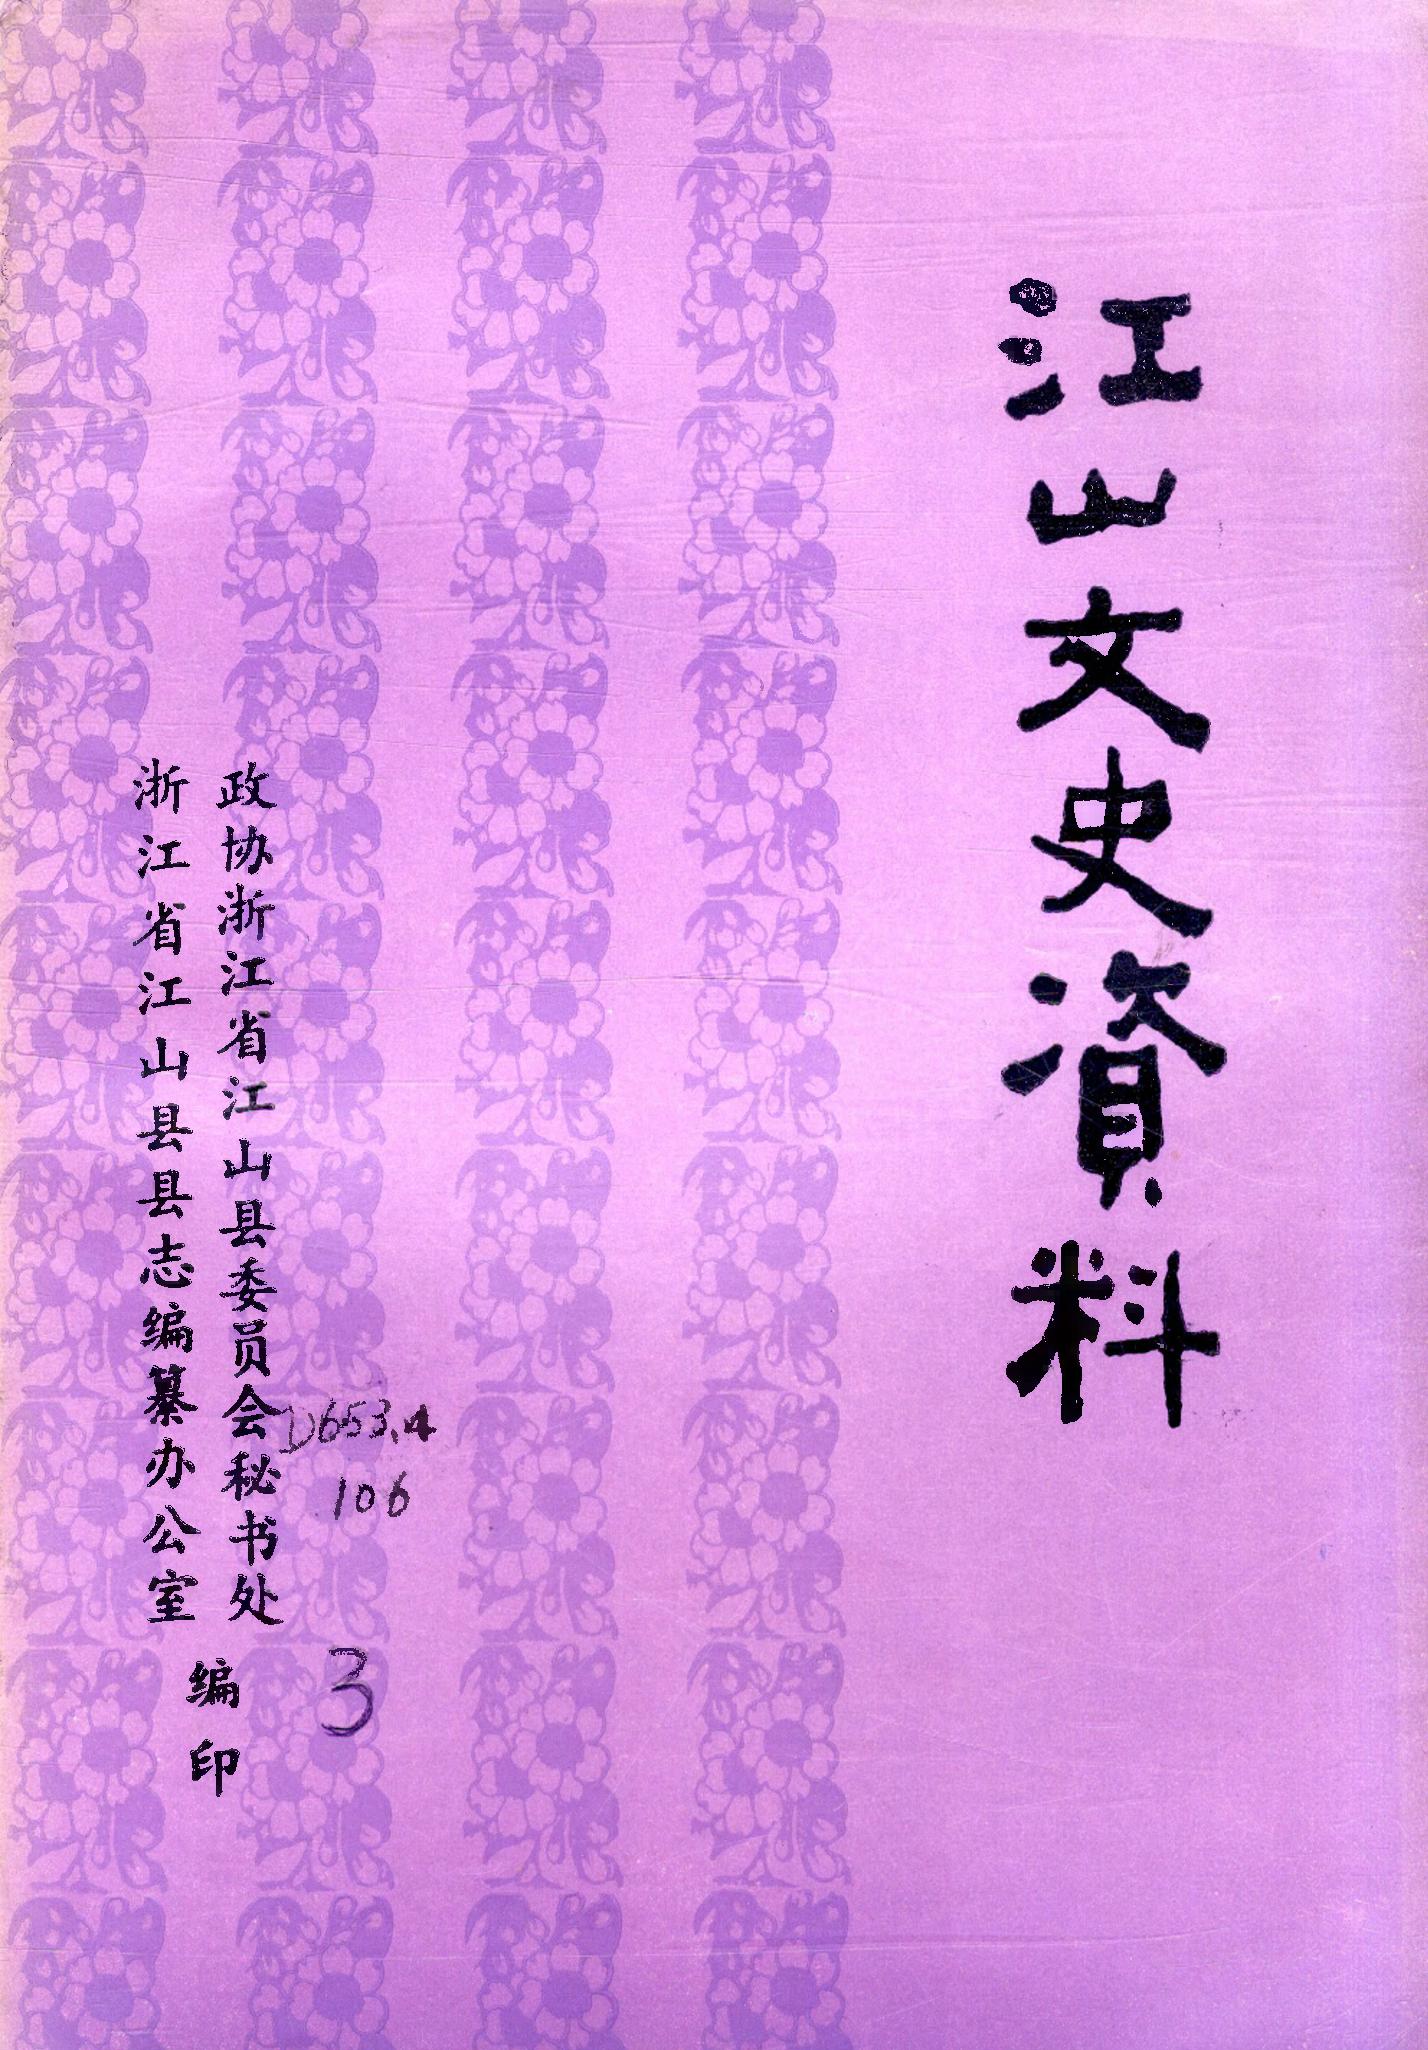 江山文史資料
政协浙江省江山县委员会秘书处
浙江省江山县县志编纂办公室
编印
D653.4
106
3